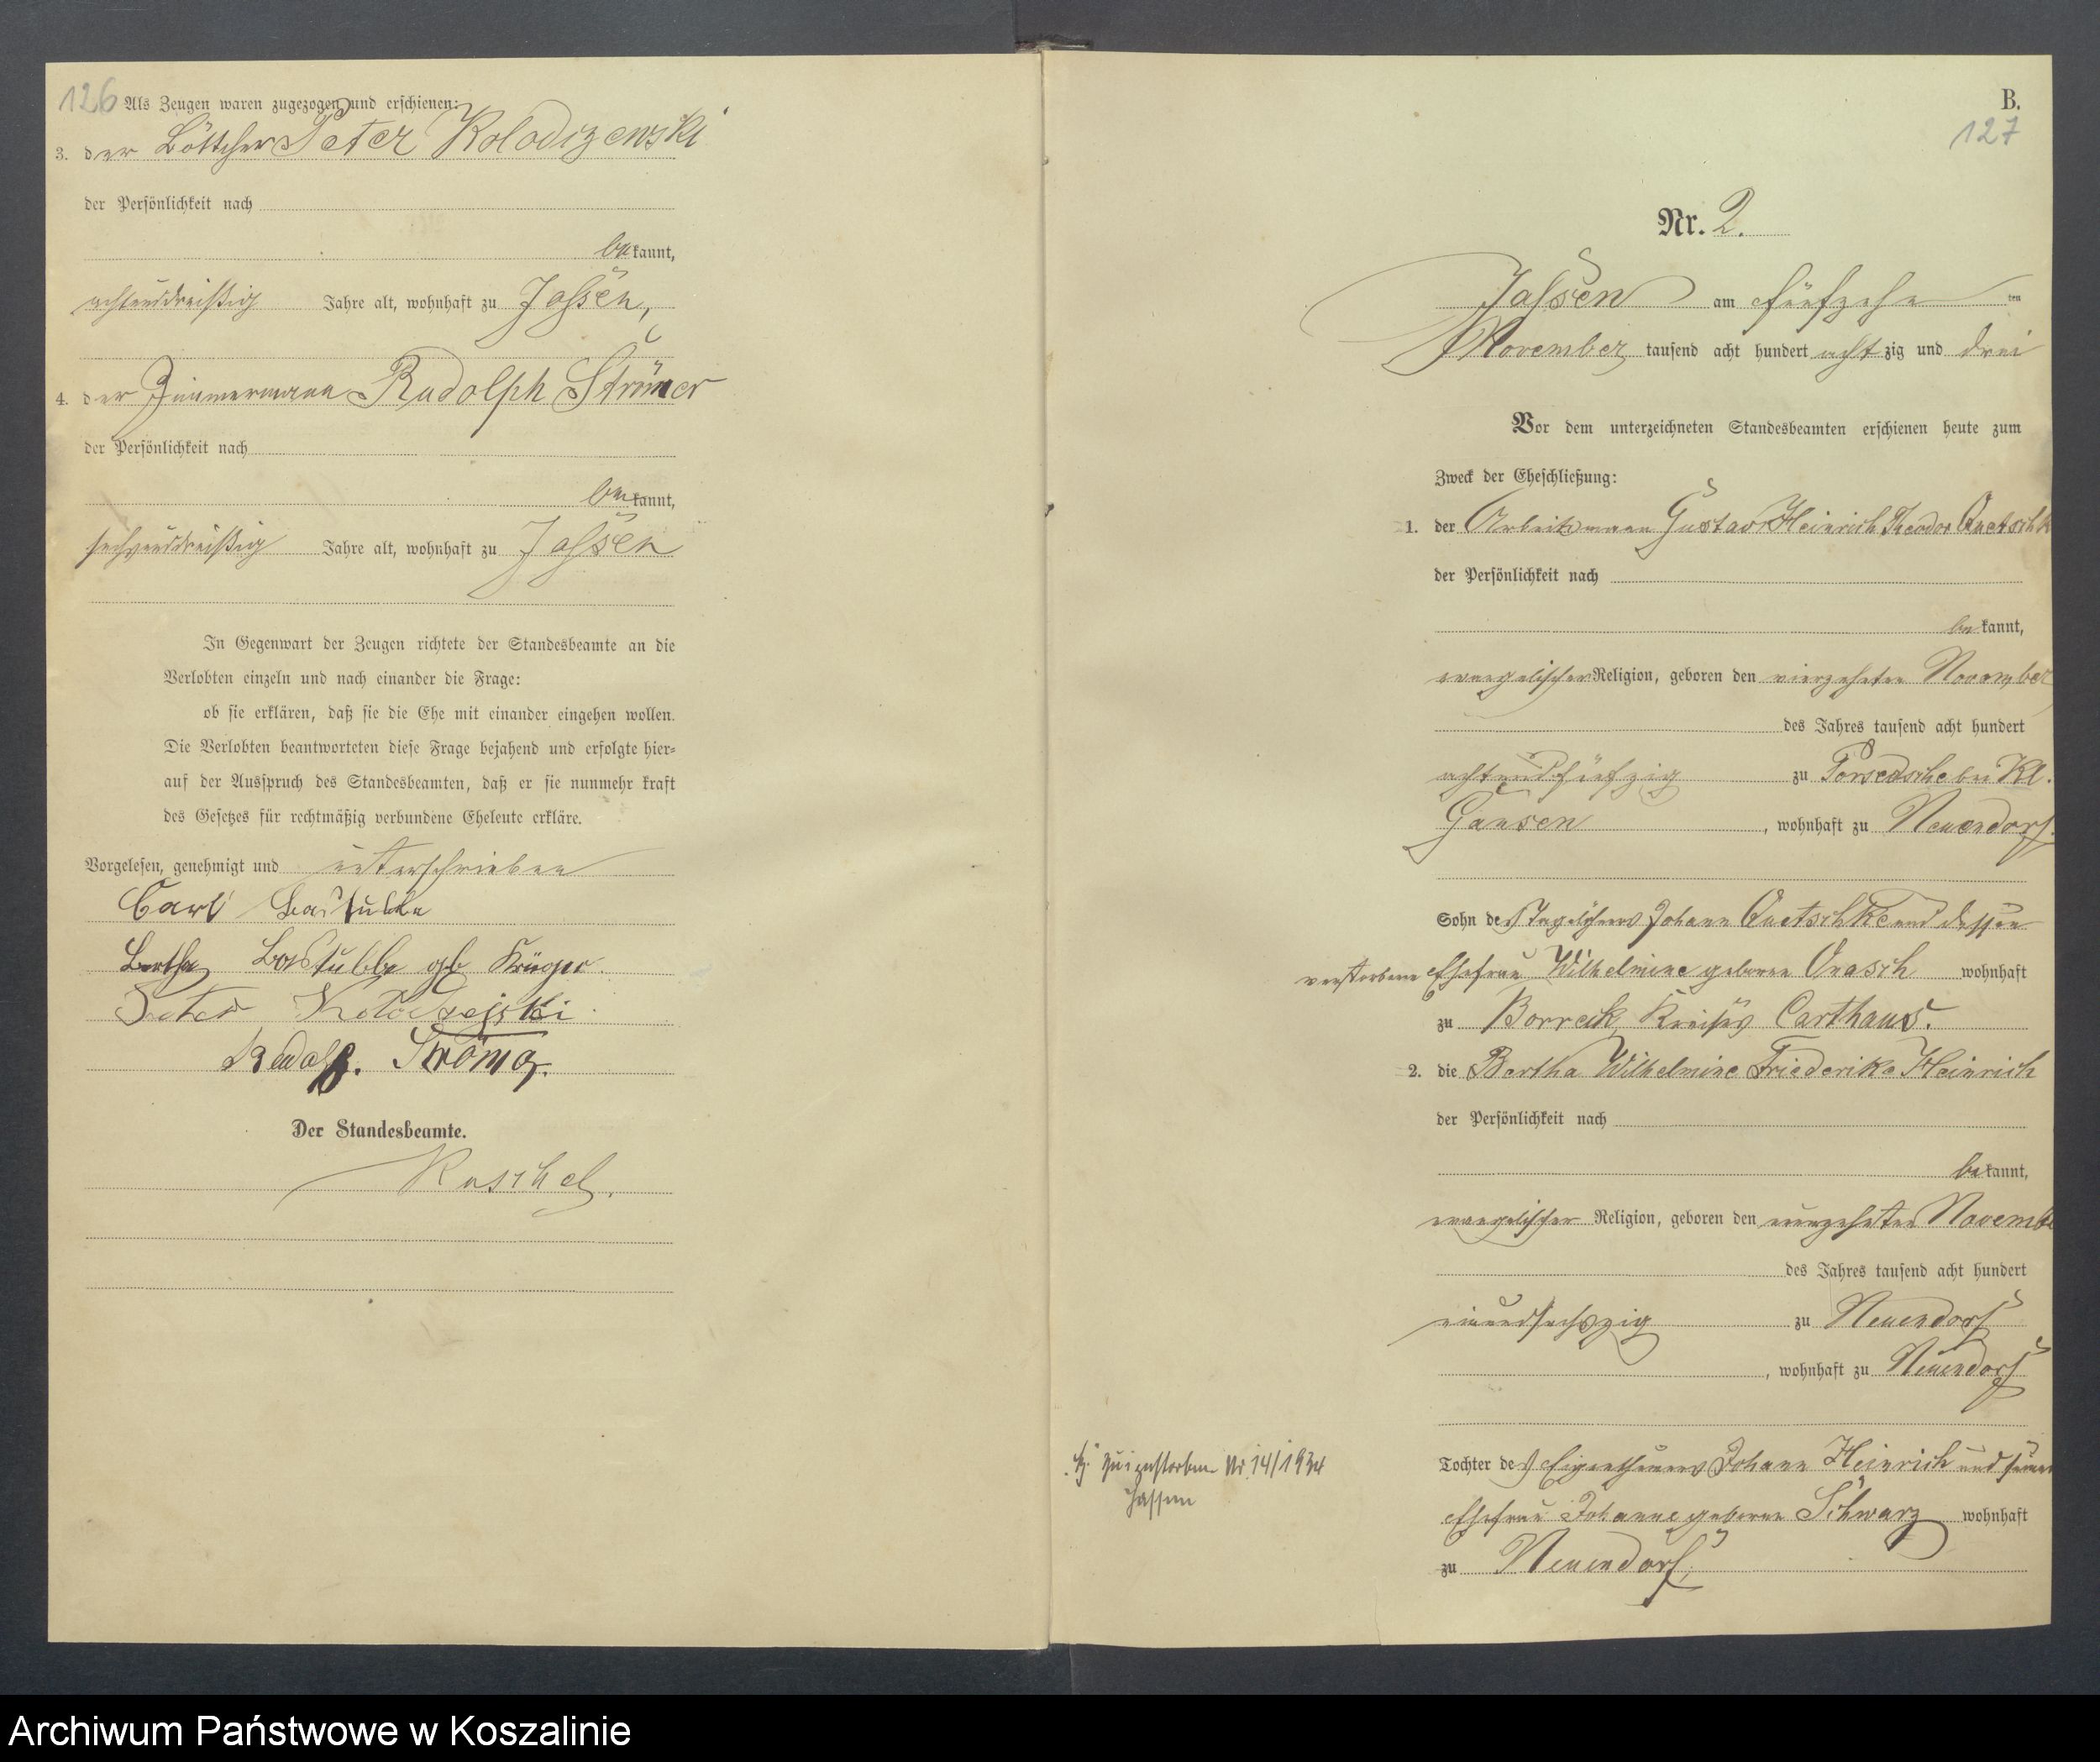 126 Als Zeugen waren zugezogen und erschienen:
3. der Böttcher Peter Kolodizewski
der Persönlichkeit nach
bekannt,
achtunddreißig Jahre alt, wohnhaft zu Jassen,
4. der Zimmermann Rudolph Strömer
der Persönlichkeit nach
bekannt,
sechsunddreißig Jahre alt, wohnhaft zu Jassen
In Gegenwart der Zeugen richtete der Standesbeamte an die
Verlobten einzeln und nach einander die Frage:
ob sie erklären, daß sie die Ehe mit einander eingehen wollen.
Die Verlobten beantworteten diese Frage bejahend und erfolgte hier-
auf der Ausspruch des Standesbeamten, daß er sie nunmehr kraft
des Gesetzes für rechtmäßig verbundene Eheleute erkläre.
Vorgelesen, genehmigt und unterschrieben
Carl Bastubbe
Bertha Bastubbe gb Krüger.
Peter
Rudolf. Strömer.
Der Standesbeamte.
Ruschel.
B.
127
Nr. 2.
Jassen am fünfzehn ten
November tausend acht hundert achtzig und drei
Vor dem unterzeichneten Standesbeamten erschienen heute zum
Zweck der Eheschließung:
1. der Arbeitsmann Gustav Heinrich Theodor Quetschk
der Persönlichkeit nach
bekannt,
evangelischer Religion, geboren den vierzehnten November
des Jahres tausend acht hundert
achtundfünfzig zu bei Kl.
Gansen, wohnhaft zu Neuendorf.
Sohn des Tagelöhners Johann Quetschke und dessen
verstorbene Ehefrau Wilhelmine geborene Orasch wohnhaft
zu Borreck, Kreises Carthaus.
2. die Bertha Wilhelmine Friederike Heinrich
der Persönlichkeit nach
bekannt,
evangelischer Religion, geboren den neunzehnten Novembe
des Jahres tausend acht hundert
einundsechszig zu Neuendorf
, wohnhaft zu Neuendorf
Tochter des Eigenthümers Johann Heinrich und seiner
Ehefrau Johanne geborene Schwarz wohnhaft
zu Neuendorf,
gestorben Nr 14/1934
Jassen
Archiwum Państwowe w Koszalinie